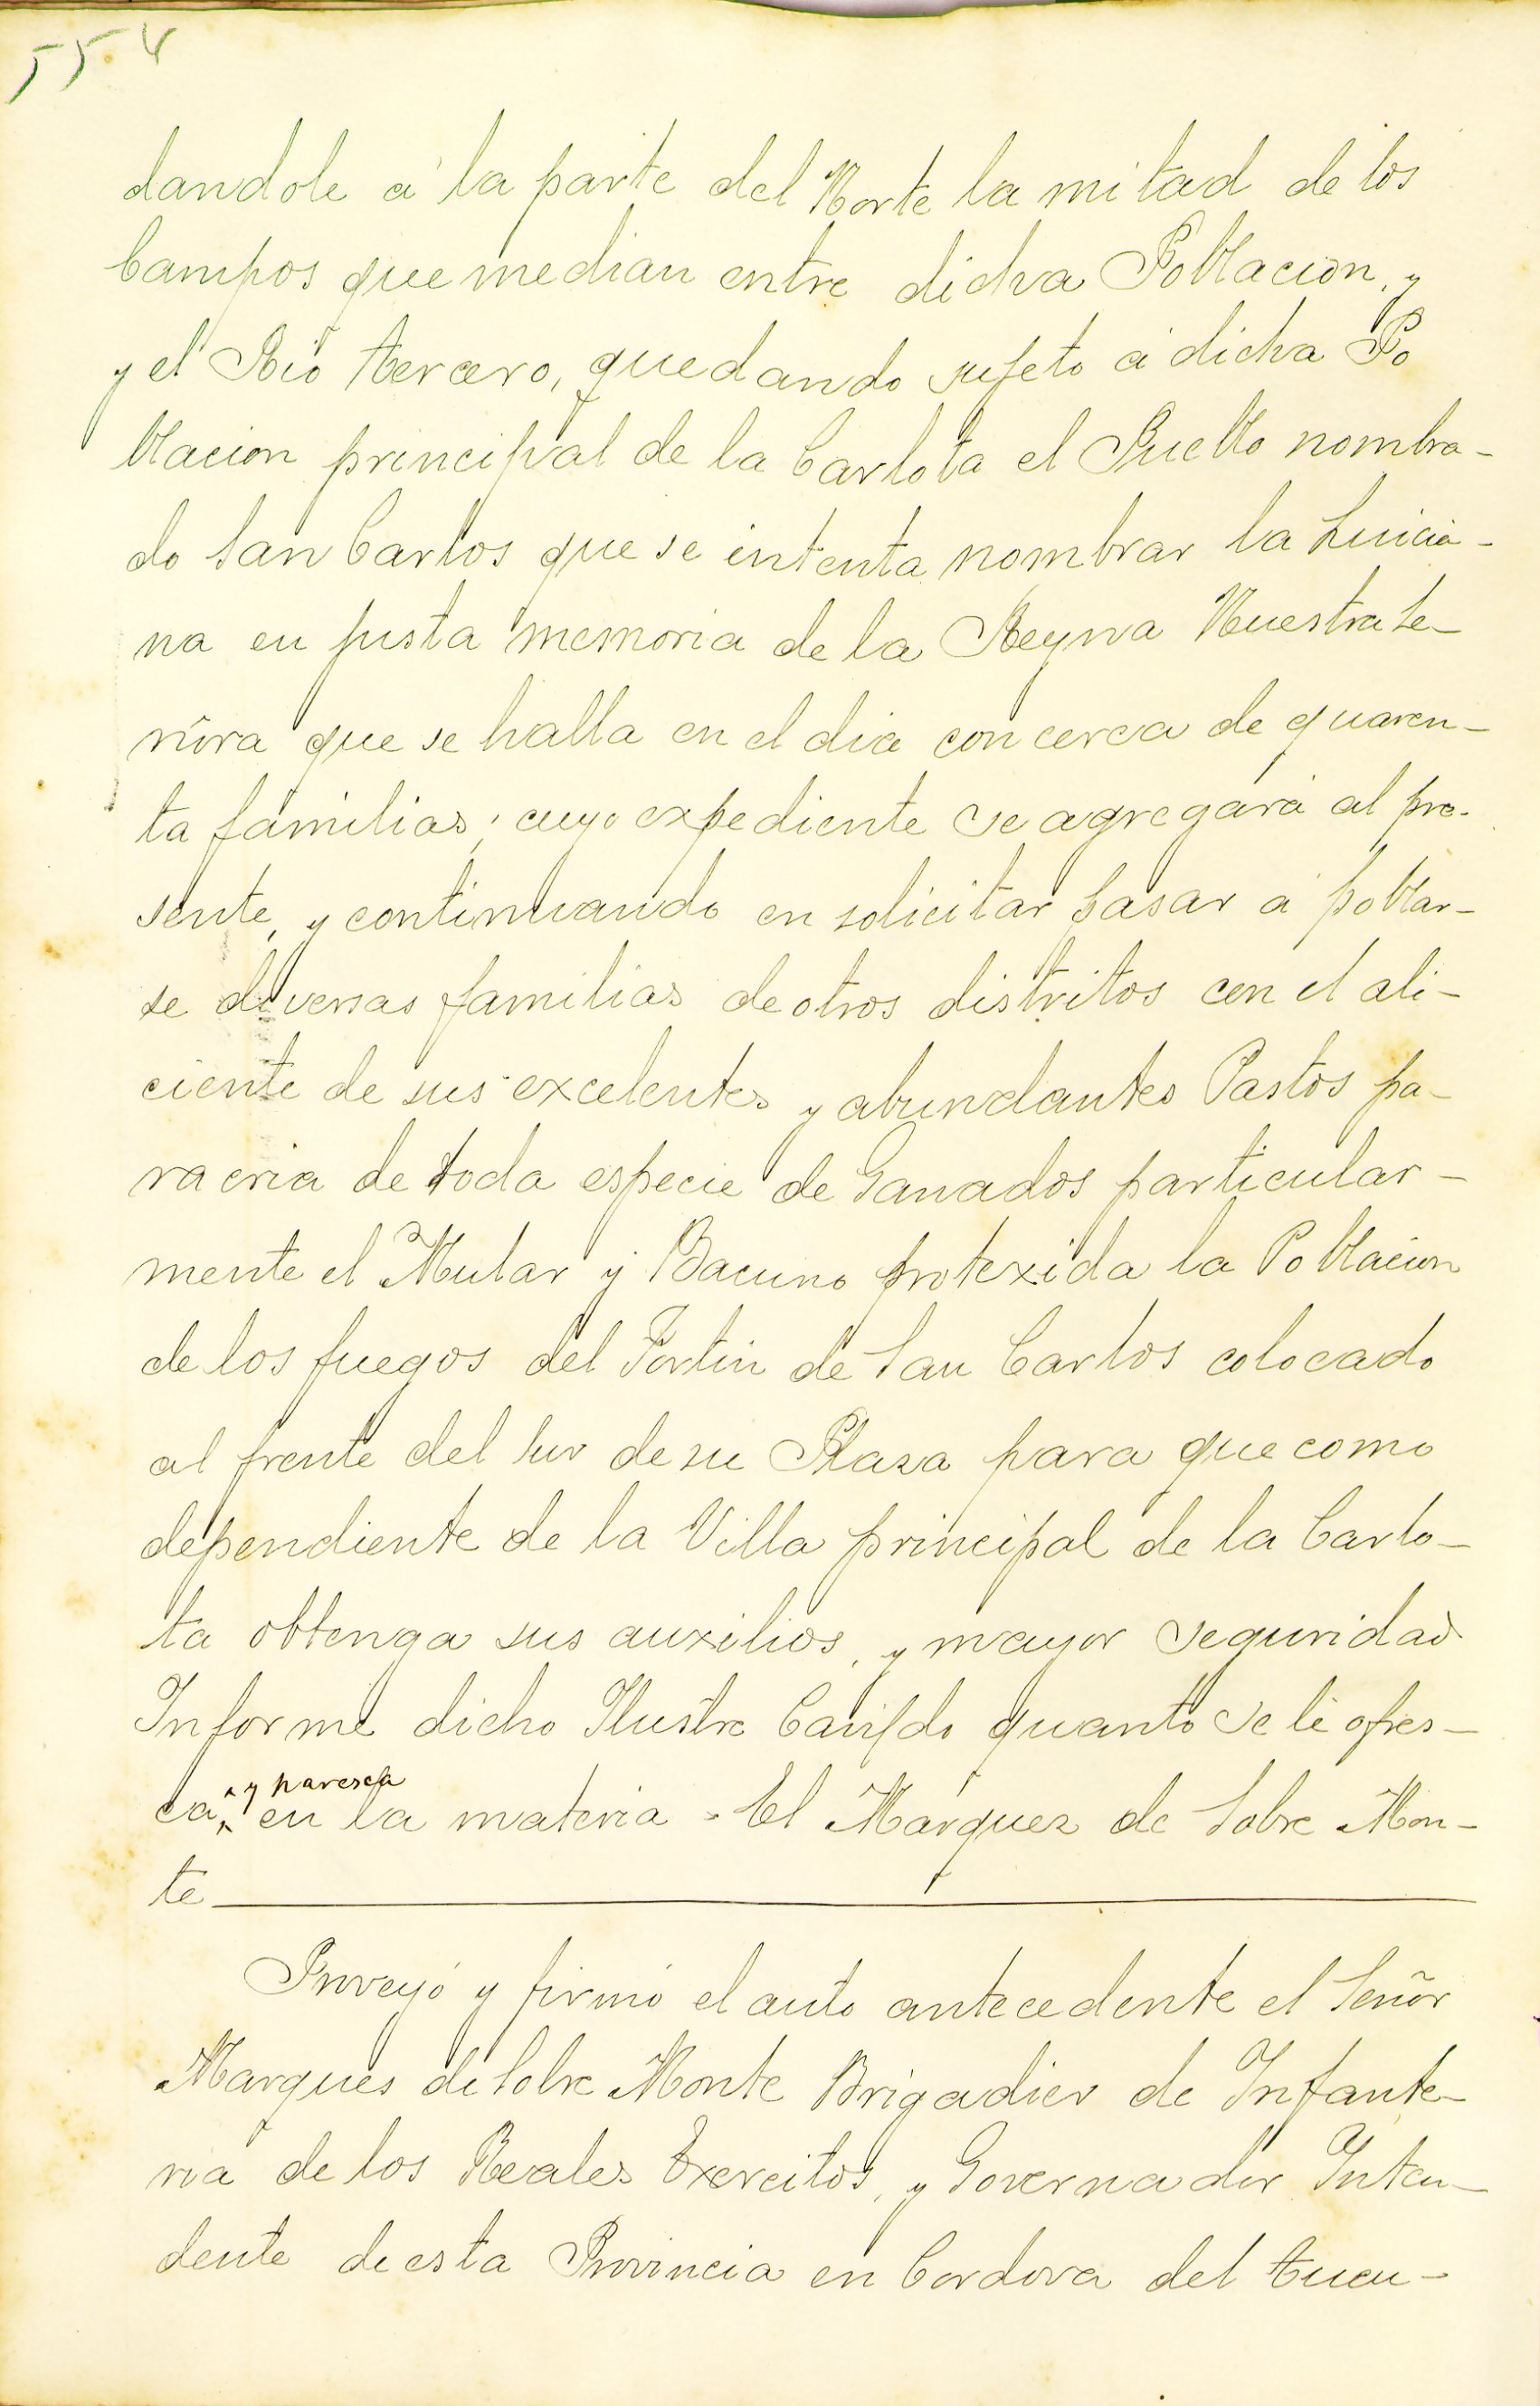 554
dandole á la parte del Norte la mitad de los
Campos que median entre dicha Poblacion, y
y el Rio tercero, quedando sujeto á dicha Po
blacion principal de la Carlota el Pueblo nombra-
do San Carlos que se intenta nombrar la Luicia-
na en justa memoria de la Reyna Nuestra Se-
ñora que se halla en el dia con cerca de quaren-
ta familias; cuyo expediente se agregará al pre-
sente, y continuando en solicitar pasar á poblar-
se diversas familias de otros distritos con el ali-
ciente de sus excelentes y abundantes Pastos pa-
ra cria de toda especie de Ganados particular-
mente el Mular y Bacuno protexida la Poblacion
de los fuegos del Fortin de San Carlos colocado
al frente del Sur de su Plaza para que como
dependiente de la Villa principal de la Carlo-
ta obtenga sus auxilios, y mayor seguridad
Informe dicho Ilustre Cavildo quanto se le ofres-
y paresca
ca en la materia - El Marquez de Sobre Mon-
te
Proveyó y firmó el auto antecedente el Señor
Marques de Sobre Monte Brigadier de Infante-
ria de los Reales Exercitos, y Governador Inten-
dente de esta Provincia en Cordova del tucu-